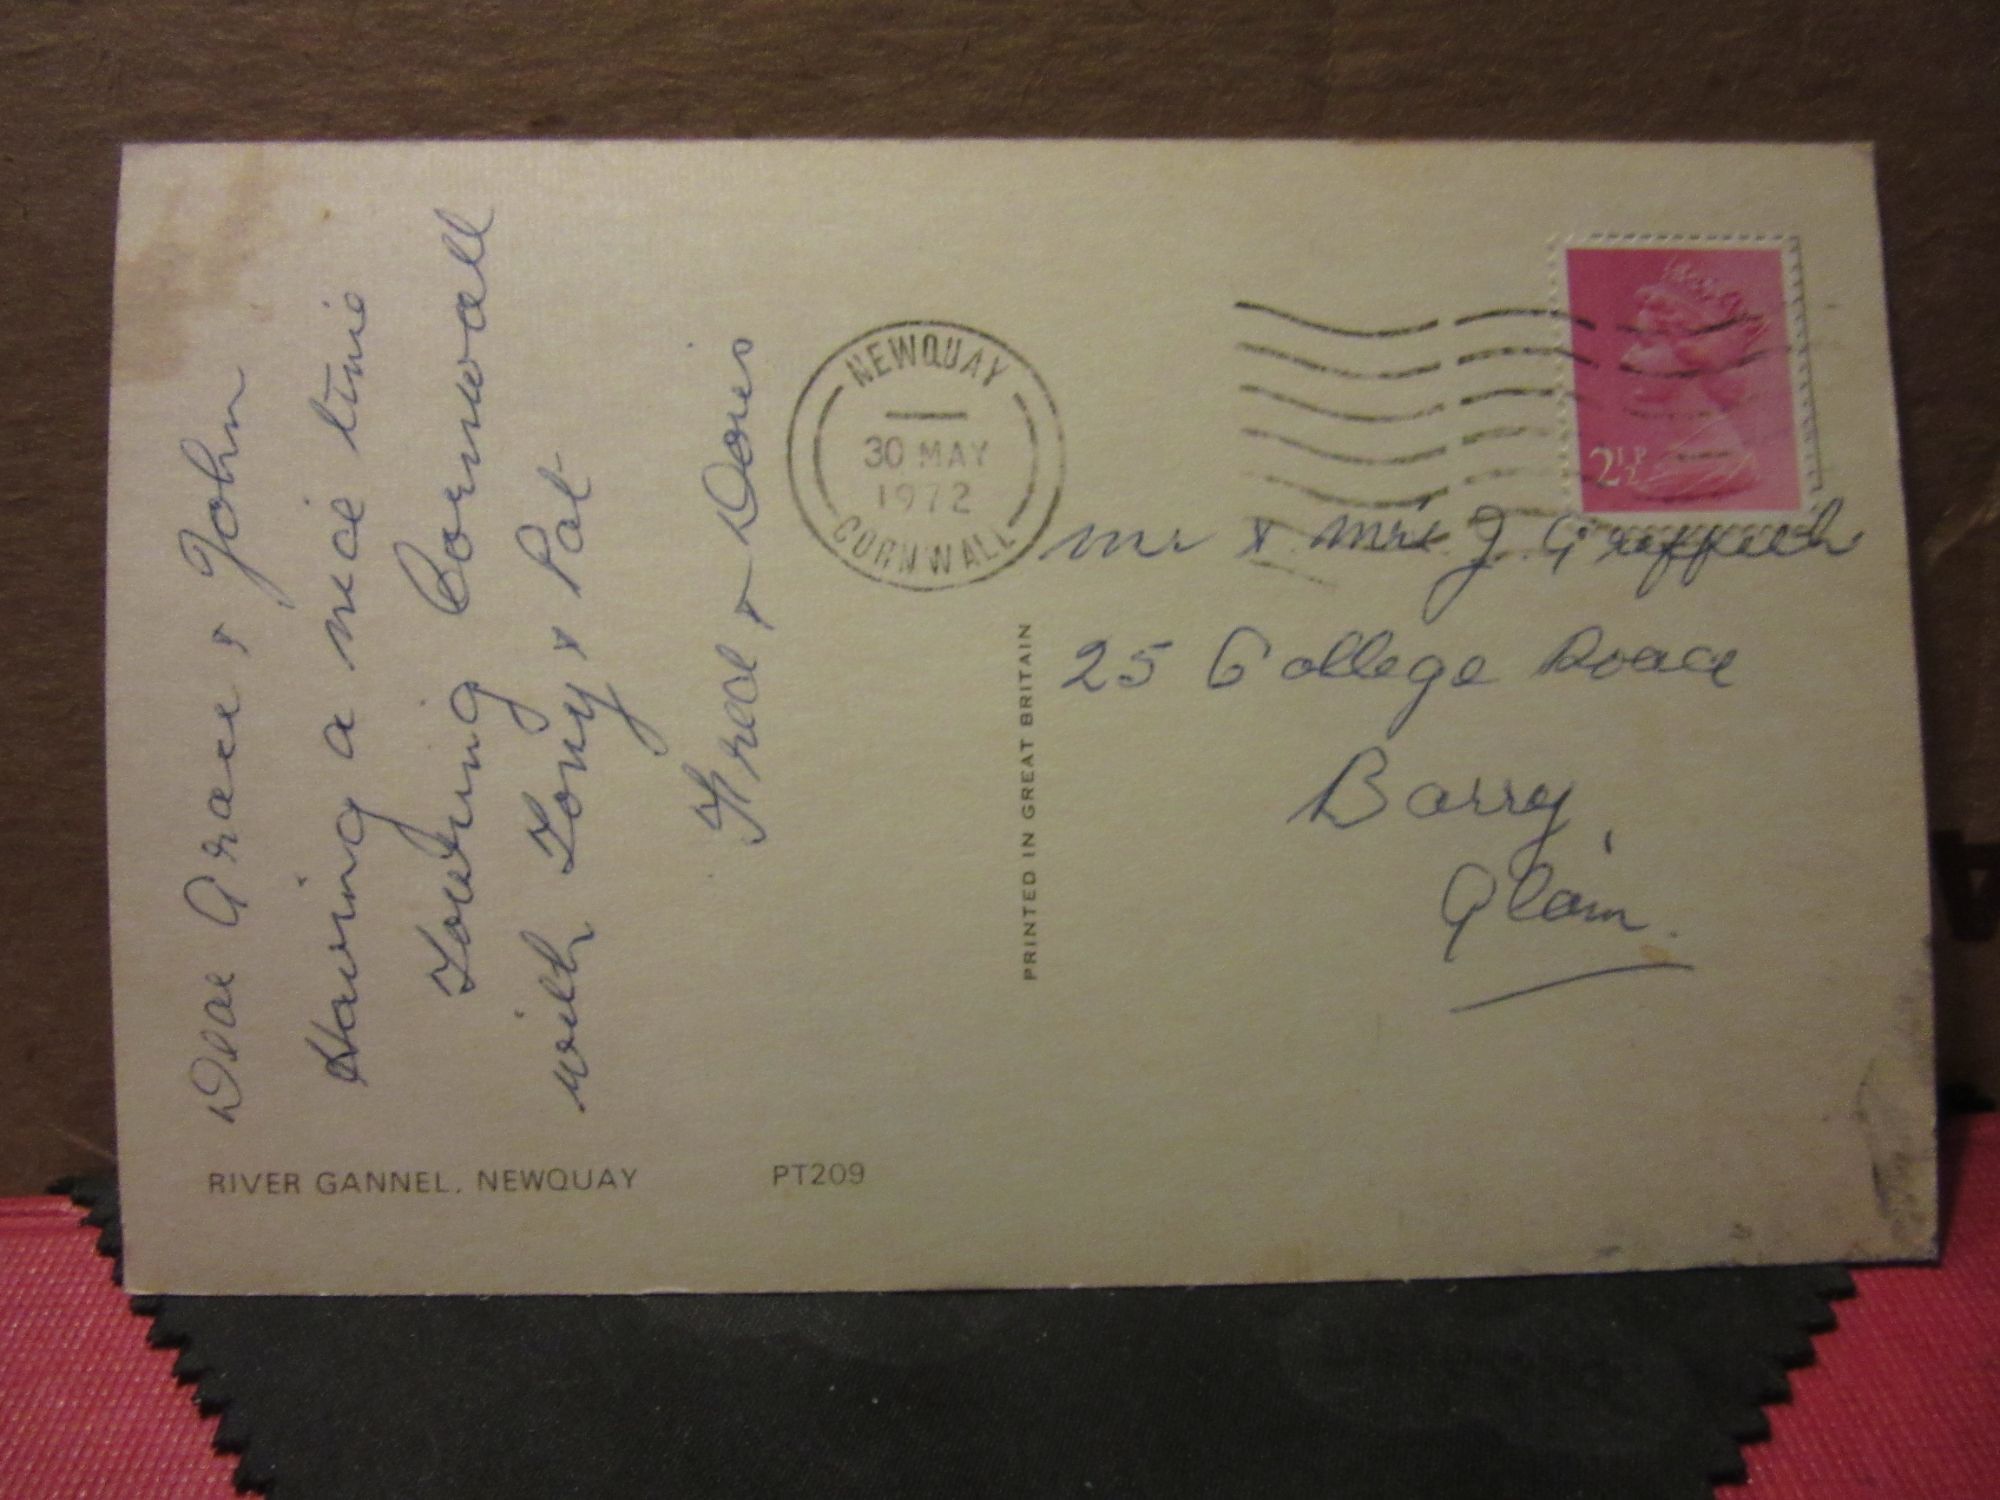 Dear Grace & John
Having a nice time
Touring Cornwall
with Tony & Pat
Fred & Doris
RIVER GANNEL, NEWQUAY PT209
PRINTED IN GREAT BRITAIN
NEWQUAY
30 MAY
1972
CORNWALL
2½P
Mr & Mrs J Griffith
25 College Road
Barry
Glam.